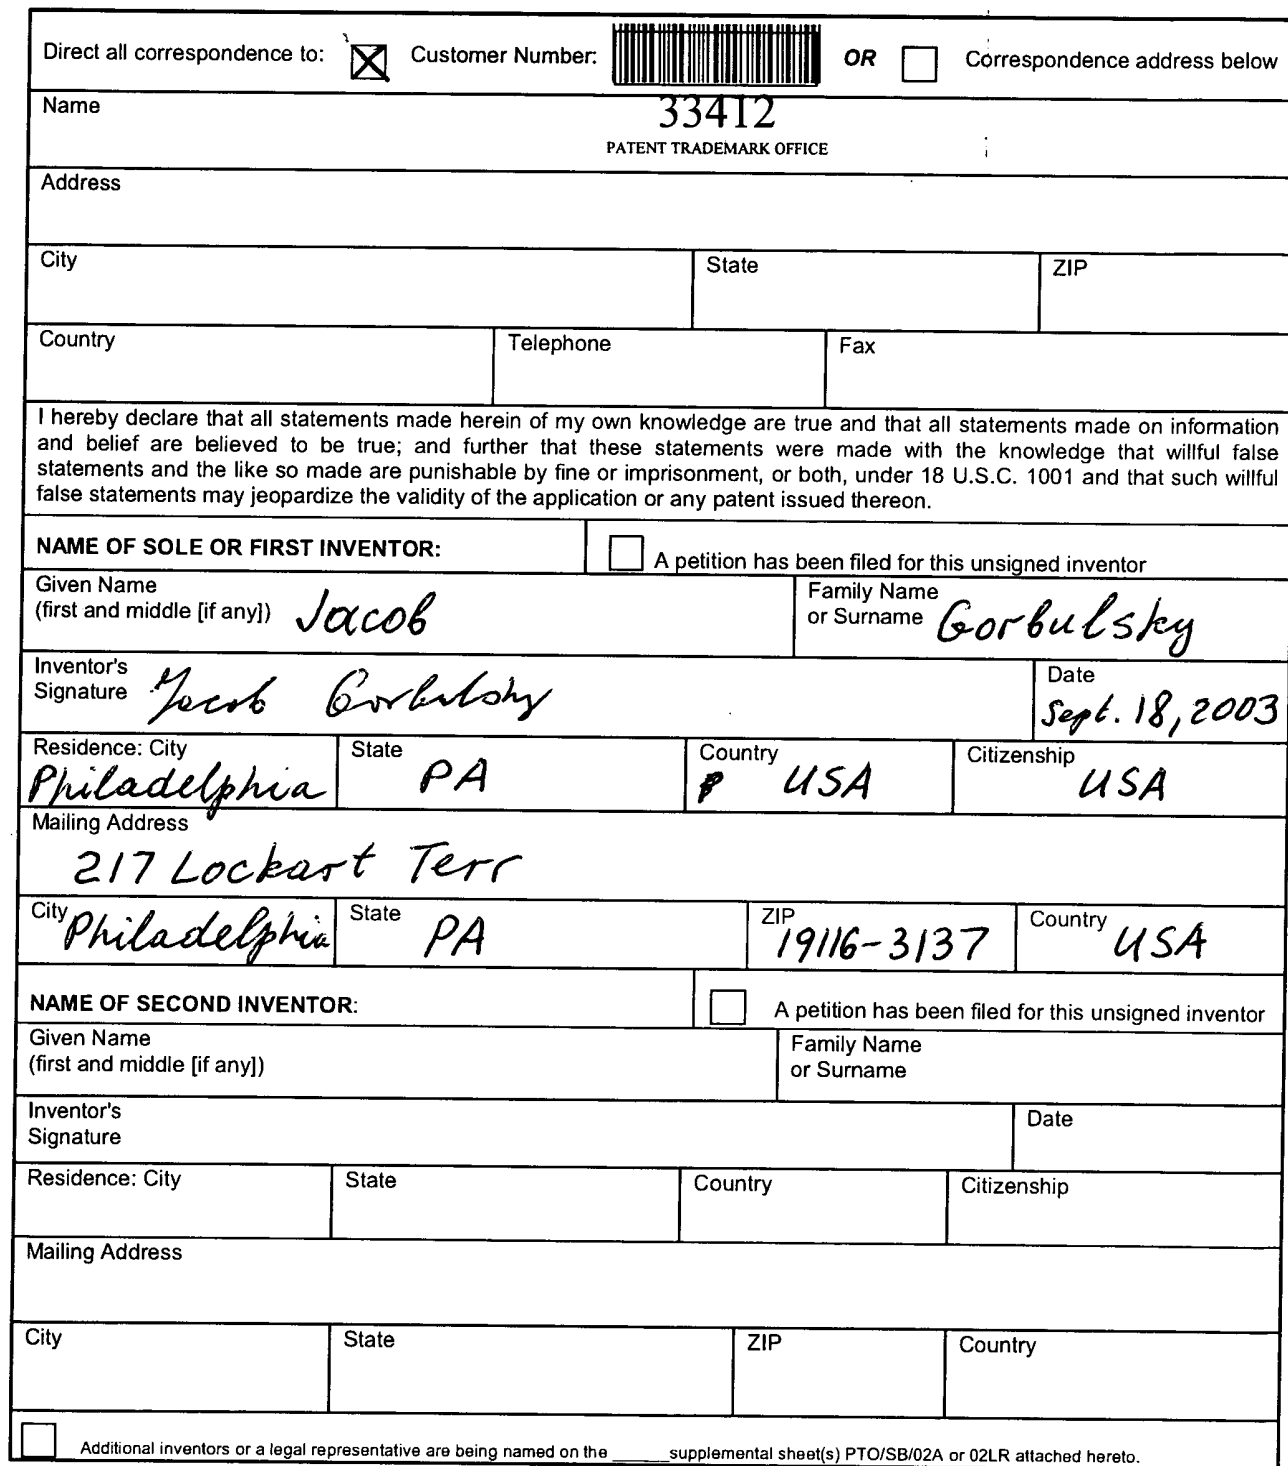 Direct all correspondence to: Customer Number: OR Correspondence address below
33412
PATENT TRADEMARK OFFICE
Name
Address
City State ZIP
Country Telephone Fax
I hereby declare that all statements made herein of my own knowledge are true and that all statements made on information
and belief are believed to be true; and further that these statements were made with the knowledge that willful false
statements and the like so made are punishable by fine or imprisonment, or both, under 18 U.S.C. 1001 and that such willful
false statements may jeopardize the validity of the application or any patent issued thereon.
NAME OF SOLE OR FIRST INVENTOR: A petition has been filed for this unsigned inventor
Given Name
(first and middle [if any]) Jacob
Family Name
or Surname Gorbulsky
Inventor's
Signature Jacob Gorbulsky
Date
Sept. 18, 2003
Residence: City State Country Citizenship
Philadelphia PA USA USA
Mailing Address
217 Lockart Terr
City Philadelphia State PA ZIP 19116-3137 Country USA
NAME OF SECOND INVENTOR: A petition has been filed for this unsigned inventor
Given Name
(first and middle [if any])
Family Name
or Surname
Inventor's
Signature
Date
Residence: City State Country Citizenship
Mailing Address
City State ZIP Country
Additional inventors or a legal representative are being named on the ______supplemental sheet(s) PTO/SB/02A or 02LR attached hereto.